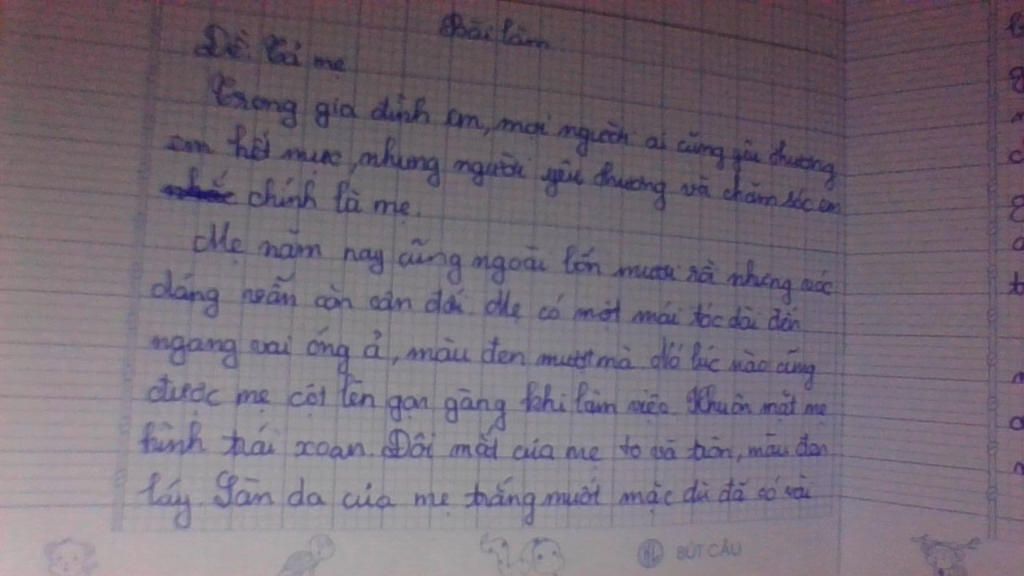 Bài làm
Đề: Tả mẹ
Trong gia đình em, mọi người ai cũng yêu thương
em hết mực, nhưng người yêu thương và chăm sóc em
chính là mẹ.
Mẹ năm nay cũng ngoài bốn mươi rồi nhưng vóc
dáng vẫn còn cân đối. Mẹ có một mái tóc dài đến
ngang vai óng ả, màu đen mượt mà đó lúc nào cũng
được mẹ cột lên gọn gàng khi làm việc. Khuôn mặt mẹ
hình trái xoan. Đôi mắt của mẹ to và tròn, màu đen
láy. Làn da của mẹ trắng mướt mặc dù đã có vài
BÚT CÂU